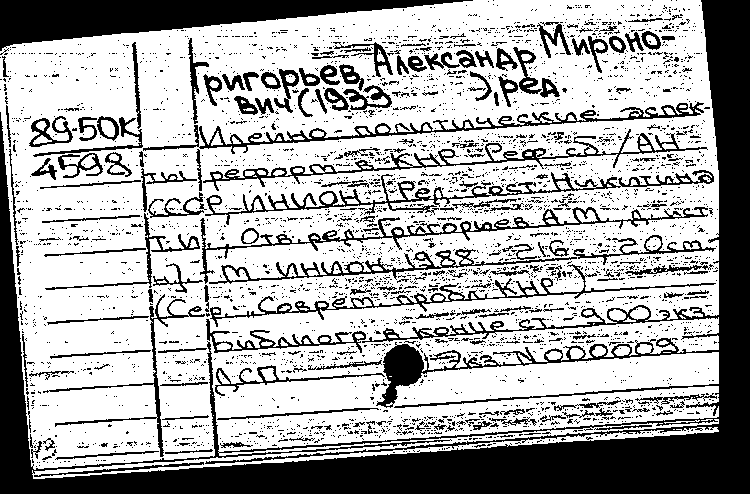 Григорьев, Александр Мироно-
вич (1933 ), ред.
89-50К
4598
Идейно-политические аспек-
ты реформ в КНР. Реф. сб. / АН
СССР, ИНИОН, [Ред. сост. Никитина
Т.И.; Отв. ред. Григорьев А.М., д. ист.
н.]. - М.: ИНИОН, 1988. - 216с.; 20см. -
(Сер. "Соврем. пробл. КНР").
Библиогр. в конце ст. - 900 экз.
ДСП. Экз. N 000009.